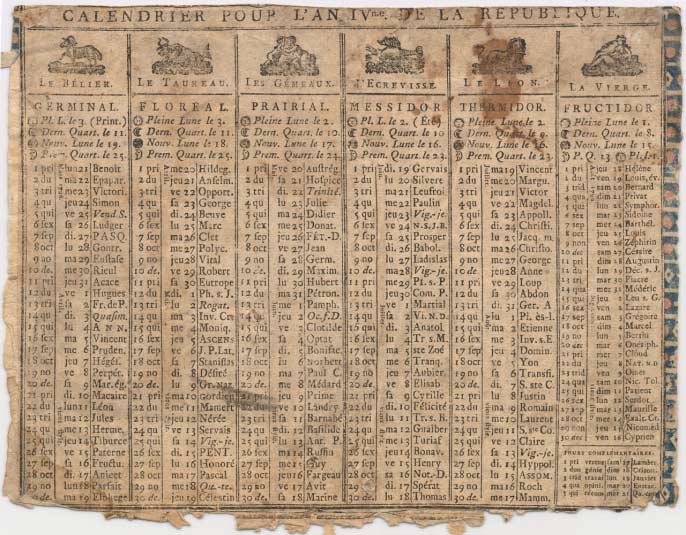 CALENDRIER POUR L'AN IVme. DE LA RÉPUBLIQUE.
LE BÉLIER. LE TAUREAU. LES GÉMEAUX. L'ECREVISSE. LE LION. LA VIERGE.
GERMINAL.
Pl. L. le 3. (Print.)
Dern. Quart. le 11.
Nouv. Lune le 19.
Prem. Quart. le 25.
1 pri lun 21 Benoît
2 du ma 22 Epapar.
3 tri me 23 Victori.
4 qua jeu 24 Simon
5 qui ve 25 Vend. S.
6 sex sa 26 Ludger
7 sep di. 27 PASQ.
8 oct lu 28 Gontr.
9 non ma 29 Eustase
10 de. me 30 Rieul
11 pri jeu 31 Acace
12 du ve 1 Hugues
13 tri sa 2 Fr. de P.
14 qua di. 3 Quasim.
15 qui lu 4 ANN.
16 sex ma 5 Vincent
17 sep me 6 Pruden.
18 oct jeu 7 Hégés.
19 no ve 8 Perpét.
20 de. sa 9 Mar. ég.
21 pri di 10 Macaire
22 du lun 11 Léon
23 tri ma 12 Jules
24 qua me 13 Herme.
25 qui jeu 14 Tiburce
26 sex ve 15 Paterne
27 sep sa 16 Fructu.
28 oct di. 17 Anicet
29 no lun 18 Parfait
30 de. ma 19 Elphege
FLOREAL.
Pleine Lune le 3.
Dern. Quart. le 11.
Nouv. Lune le 18.
Prem. Quart. le 25.
1 pri me 20 Hildeg.
2 du jeu 21 Anselm.
3 tri ve 22 Opport.
4 qua sa 23 George
5 qui di. 24 Beuve
6 sex lu 25 Marc
7 sep ma 26 Clet
8 oct me 27 Polyc.
9 non jeu 28 Vital
10 de. ve 29 Robert
11 pri sa 30 Eutrope
12 du di. 1 Ph. s. J.
13 tri lu 2 Rogat.
14 qua ma 3 Inv. Cr.
15 qui me 4 Moniq.
16 sex jeu 5 ASCENS
17 sep ve 6 J. P. Lat.
18 oct sa 7 Stanislas
19 no di. 8 Désiré
20 de. lu 9 Gr. Naz
21 pri ma 10 Gordien
22 du me 11 Mamert
23 tri jeu 12 Nérée
24 qua ve 13 Servais
25 qui sa 14 Vig.-je.
26 sex di. 15 PENT.
27 sep lu 16 Honoré
28 oct ma 17 Pascal
29 no me 18 Qu.-te.
30 de. jeu 19 Célestin
PRAIRIAL.
Pleine Lune le 2.
Dern. Quart. le 10.
Nouv. Lune le 17.
Prem. Quart. le 24.
1 pri ve 20 Austrég.
2 du sa 21 Hospice
3 tri di. 22 Trinité
4 qua lu 23 Julie
5 qui ma 24 Didier
6 sex me 25 Donat.
7 sep jeu 26 FÊT.-D.
8 oct ve 27 Jean
9 non sa 28 Germ.
10 de. di. 29 Maxim.
11 pri lu 30 Hubert
12 du ma 31 Pétron.
13 tri me 1 Pamph.
14 qua jeu 2 Oc. f. D.
15 qui ve 3 Clotilde
16 sex sa 4 Optat
17 sep di. 5 Boniface.
18 oct lu 6 Norbert
19 no ma 7 Paul C.
20 de. me 8 Médard
21 pri jeu 9 Prime
22 du ve 10 Landry
23 tri sa 11 Barnabé
24 qua di 12 Basilide
25 qui lu 13 Ant. P.
26 sex ma 14 Ruffin
27 sep me 15 Guy
28 oct jeu 16 Fargeau
29 no ve 17 Avit
30 de. sa 18 Marine
MESSIDOR.
Pl. L. le 2. (Été)
Dern. Quart. le 10
Nouv. Lune le 16.
Prem. Quart. le 23.
1 pri di. 19 Gervais
2 du lu 20 Silvere
3 tri ma 21 Leufroi
4 qua me 22 Paulin
5 qui jeu 23 Vig.-je
6 sex ve 24 N. S. J. B.
7 sep sa 25 Prosper
8 oct di. 26 Babol.
9 non lu 27 Ladislas
10 de. ma 28 Vig.-je.
11 pri me 29 Pi. s. P.
12 du jeu 30 Com. P.
13 tri ve 1 Martial
14 qua sa 2 Vi. N. D.
15 qui di. 3 Anatol.
16 sex lu 4 Tr. s M.
17 sep ma 5 ste Zoé
18 oct me 6 Tranq.
19 no jeu 7 Aubier.
20 de. ve 8 Elisab
21 pri sa 9 Cyrille
22 du di. 10 Félicité
23 tri lu 11 Tr. s. B.
24 qua ma 12 Gualber
25 qui me 13 Turiaf
26 sex jeu 14 Bonav.
27 sep ve 15 Henry
28 oct sa 16 Not.-D.
29 no di. 17 Spérat
30 de. lu 18 Thomas
THERMIDOR.
Pleine Lune le 2.
Dern. Quart. le 9.
Nouv. Lune le 16.
Prem. Quart. le 23.
1 pri ma 19 Vincent
2 du me 20 Margu.
3 tri jeu 21 Victor
4 qua ve 22 Magdel.
5 qui sa 23 Apoll.
6 sex di. 24 Christi.
7 sep lu 25 Jacq. m.
8 oct ma 26 Christo.
9 non me 27 George
10 de. jeu 28 Anne
11 pri ve 29 Loup
12 du sa 30 Abdon
13 tri di. 31 Ger. A
14 qua lu 1 Pi. ès-l.
15 qui ma 2 Etienne
16 sex me 3 Inv. s. E
17 sep jeu 4 Domin.
18 oct ve 5 Yon
19 no sa 6 Transfi.
20 de. di. 7 S. ste C.
21 pri lu 8 Justin
22 du ma 9 Romain
23 tri me 10 Laurent
24 qua jeu 11 S. te Co
25 qui ve 12 Claire
26 sex sa 13 Vig.-je.
27 sep di 14 Hyppol.
28 oct lu 15 ASSOM.
29 no ma 16 Roch
30 de. me 17 Mamm.
FRUCTIDOR.
Pleine Lune le 1.
Dern. Quart. le 8.
Nouv. Lune le 15.
P. Q. 13 Pl. L.
1 pri jeu 18 Hélene
2 du ven 19 Louis, év.
3 tri sam 20 Bernard
4 qua dim 21 Privat
5 qui lun 22 Symphor.
6 sex mar 23 Sidoine
7 sep mer 24 Barthél.
8 oct jeu 25 Louis
9 non ven 26 Zéphirin
10 dec sam 27 Césaire
11 pri dim 28 Augustin
12 du lun 29 Déc. s. J.
13 tri mar 30 Fiacre
14 qua mer 31 Médéric
15 qui jeu 1 Leu s. G.
16 sex ven 2 Lazare
17 sep sam 3 Grégoire
18 oct dim 4 Marcel
19 non lun 5 Bertin
20 dec mar 6 Onésiph.
21 pri mer 7 Cloud
22 du jeu 8 Nat. N. D
23 tri ven 9 Omer
24 qua sam 10 Nic. Tol.
25 qui dim 11 Patient
26 sex lun 12 Serdot
27 sep mar 13 Maurille
28 oct mer 14 Exalt. Cr.
29 non jeu 15 Nicoméd
30 dec ven 16 Cyprien
JOURS COMPLÉMENTAIRES.
1 pri vertus sam 17 Lamber.
2 duo génie dim 18
3 tri travail lun 19 Janvier
4 qua opini. mar 20 Eustac.
5 qui récom mer 21